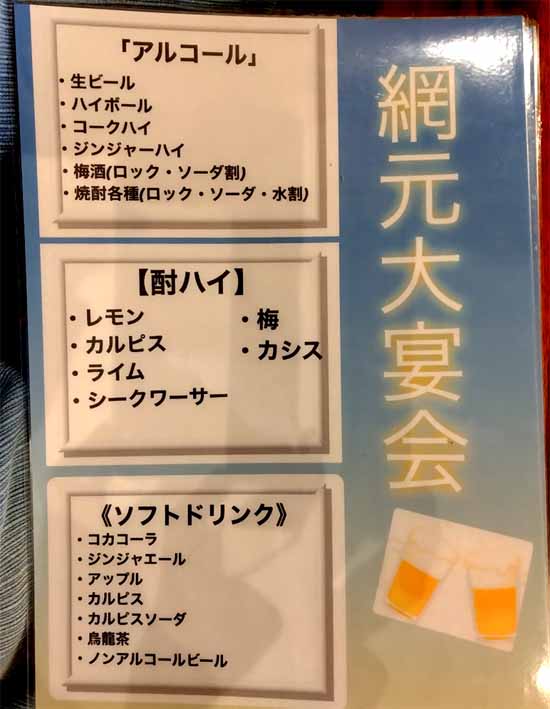 網元大宴会
「アルコール」
・生ビール
・ハイボール
・コークハイ
・ジンジャーハイ
・梅酒(ロック・ソーダ割)
・焼酎各種(ロック・ソーダ・水割)
【酎ハイ】
・レモン
・カルピス
・ライム
・シークワーサー
・梅
・カシス
《ソフトドリンク》
・コカコーラ
・ジンジャエール
・アップル
・カルピス
・カルピスソーダ
・烏龍茶
・ノンアルコールビール